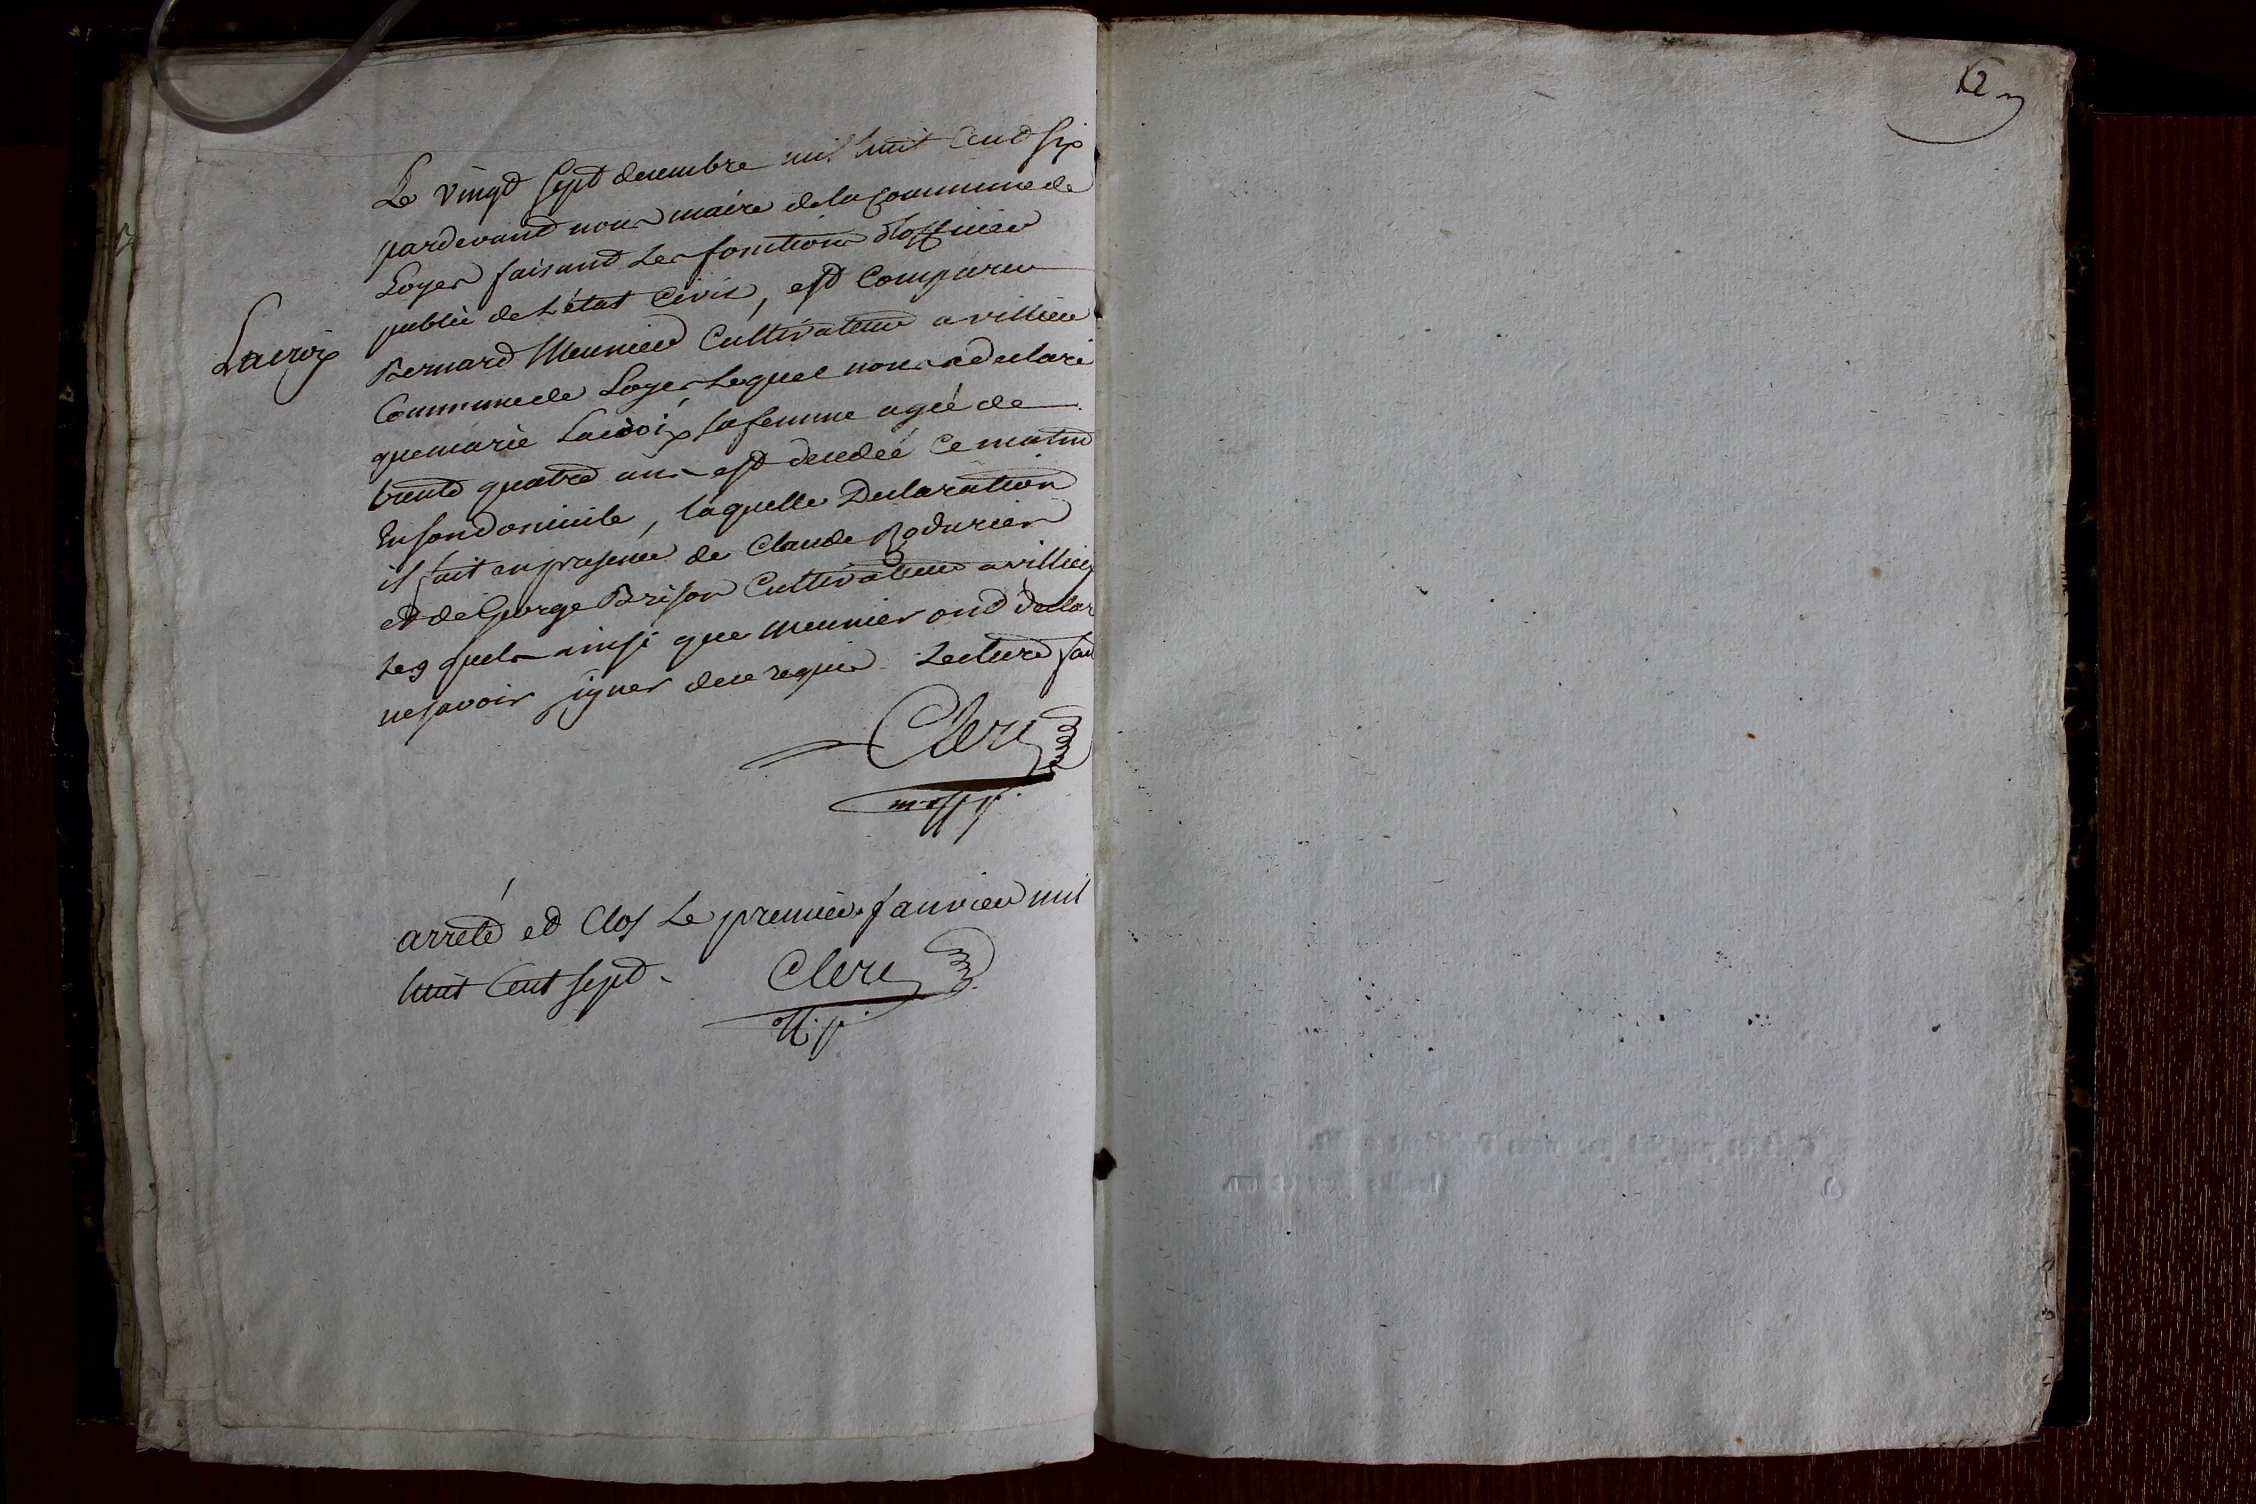 Lacroix
Le vingt sept decembre mil huit cent six
pardevant nous maire de la Commune de
Loyes faisant les fonctions d'officier
public de l'état civil, est comparu
Bernard Meunier Cultivateur a villieu
Commune de Loyes lequel nous a declaré
que marie Lacroix sa femme agée de
trente quatre ans est decedée ce matin
en son domicile, laquelle Declaration
il fait en presence de Claude
et de George Brison Cultivateur a villieu
Les quels ainsi que Meunier ont déclar
ne savoir signer de ce requis. Lecture fai
Clerc
m. off. p.
arrêté et Clos Le premier Janvier mil
huit Cent sept.
Clerc
off. p.